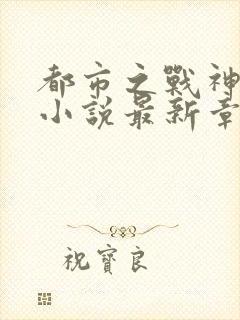 都市之戰神
小說最新章
祝寶良